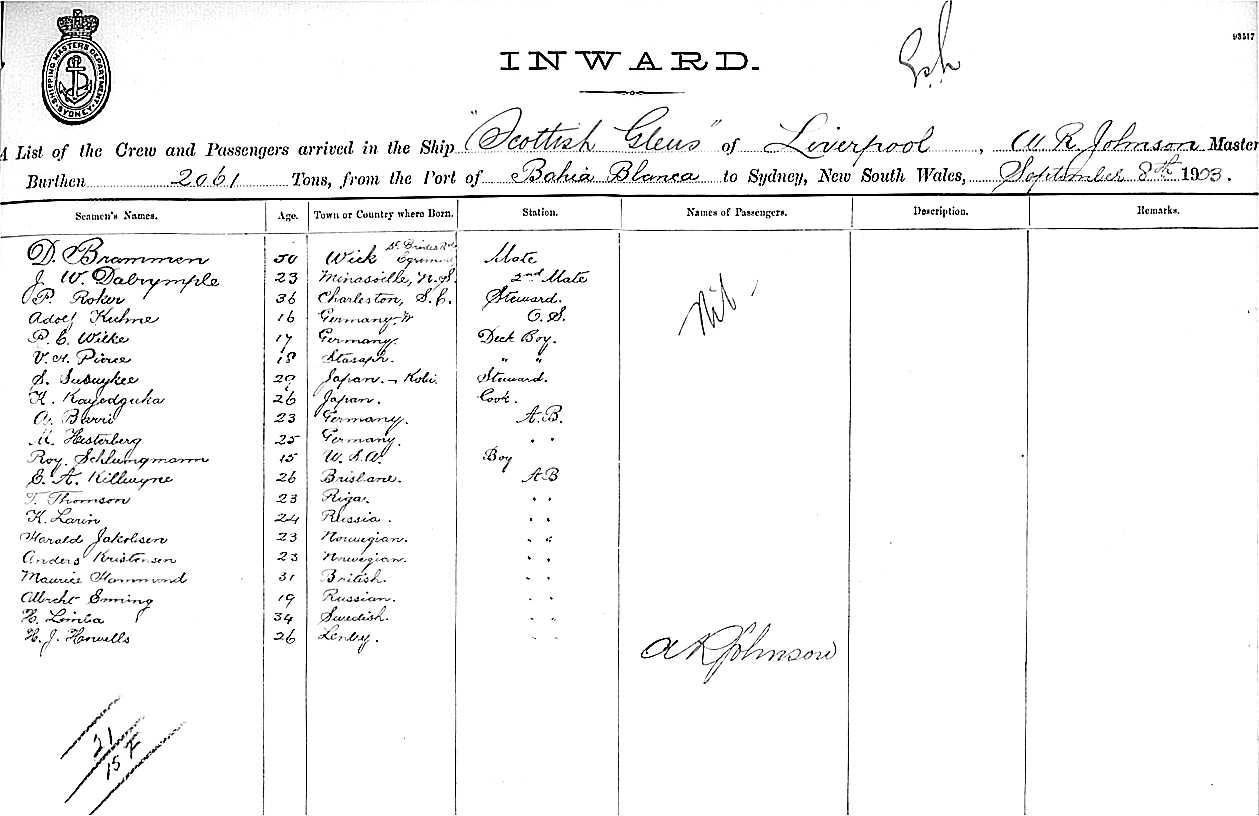 93517
SHIPPING MASTERS DEPARTMENT SYDNEY
INWARD.
A List of the Crew and Passengers arrived in the Ship "Scottish Glens" of Liverpool, W R Johnson Master
Burthen 2061 Tons, from the Port of Bahia Blanca to Sydney, New South Wales, September 8th 1903.
Seamen's Names. Age. Town or Country where Born. Station. Names of Passengers. Description. Remarks.
D. Brammen 50 Wick Mate
J. W. Dalrymple 23 N.S. 2nd Mate
P. Roker 36 Charleston, S.C. Steward. Nil
Adolf Kuhne 16 Germany O.S.
P. C. Wilke 17 Germany. Deck Boy.
V. H. Pierce 18 " "
S. 29 Japan. - Kobi. Steward.
K. 26 Japan. Cook.
A. Barri 23 Germany. A.B.
M. Hesterberg 25 Germany. " "
Roy. Schlungmann 15 U.S.A. Boy
E. A. Killwyne 26 Brisbane. AB
T. Thomson 23 Riga. " "
K. Larin 24 Russia. " "
Harald Jakobsen 23 Norwegian. " "
Anders Kristensen 23 Norwegian. " "
Maurice Hammond 31 British. " "
Albrcht Enning 19 Russian. " "
H. Limba 34 Swedish. " "
H. J. Howells 26 " "
A R Johnson
21
15 F